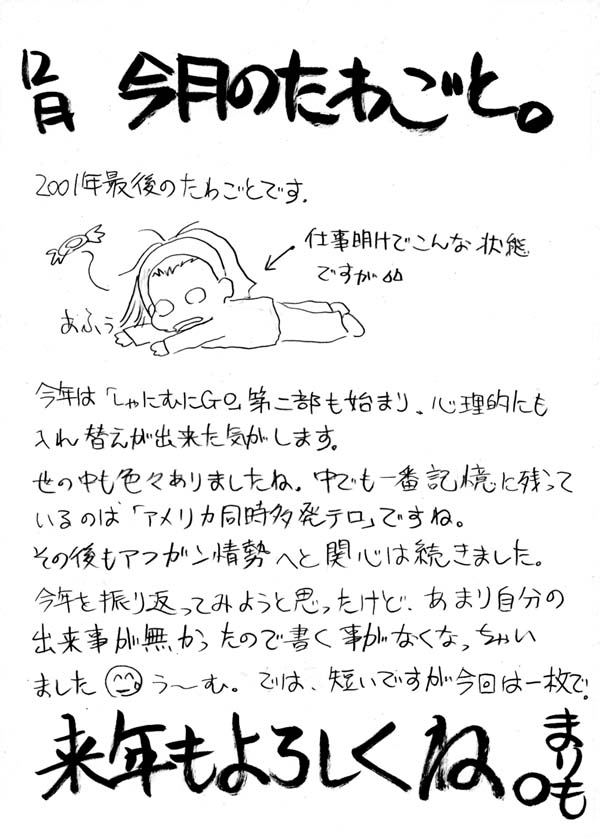 12月 今月のたわごと。
2001年最後のたわごとです.
仕事明けでこんな状態
ですが
あふぅ
今年は「しゃにむにGO」第二部も始まり、心理的にも
入れ替えが出来た気がします。
世の中も色々ありましたね。中でも一番記憶に残って
いるのは「アメリカ同時多発テロ」ですね。
その後もアフガン情勢へと関心は続きました。
今年を振り返ってみようと思ったけど、あまり自分の
出来事が無かったので書く事がなくなっちゃい
ました う〜む。では、短いですが今回は一枚で.
来年もよろしくね。
まりも